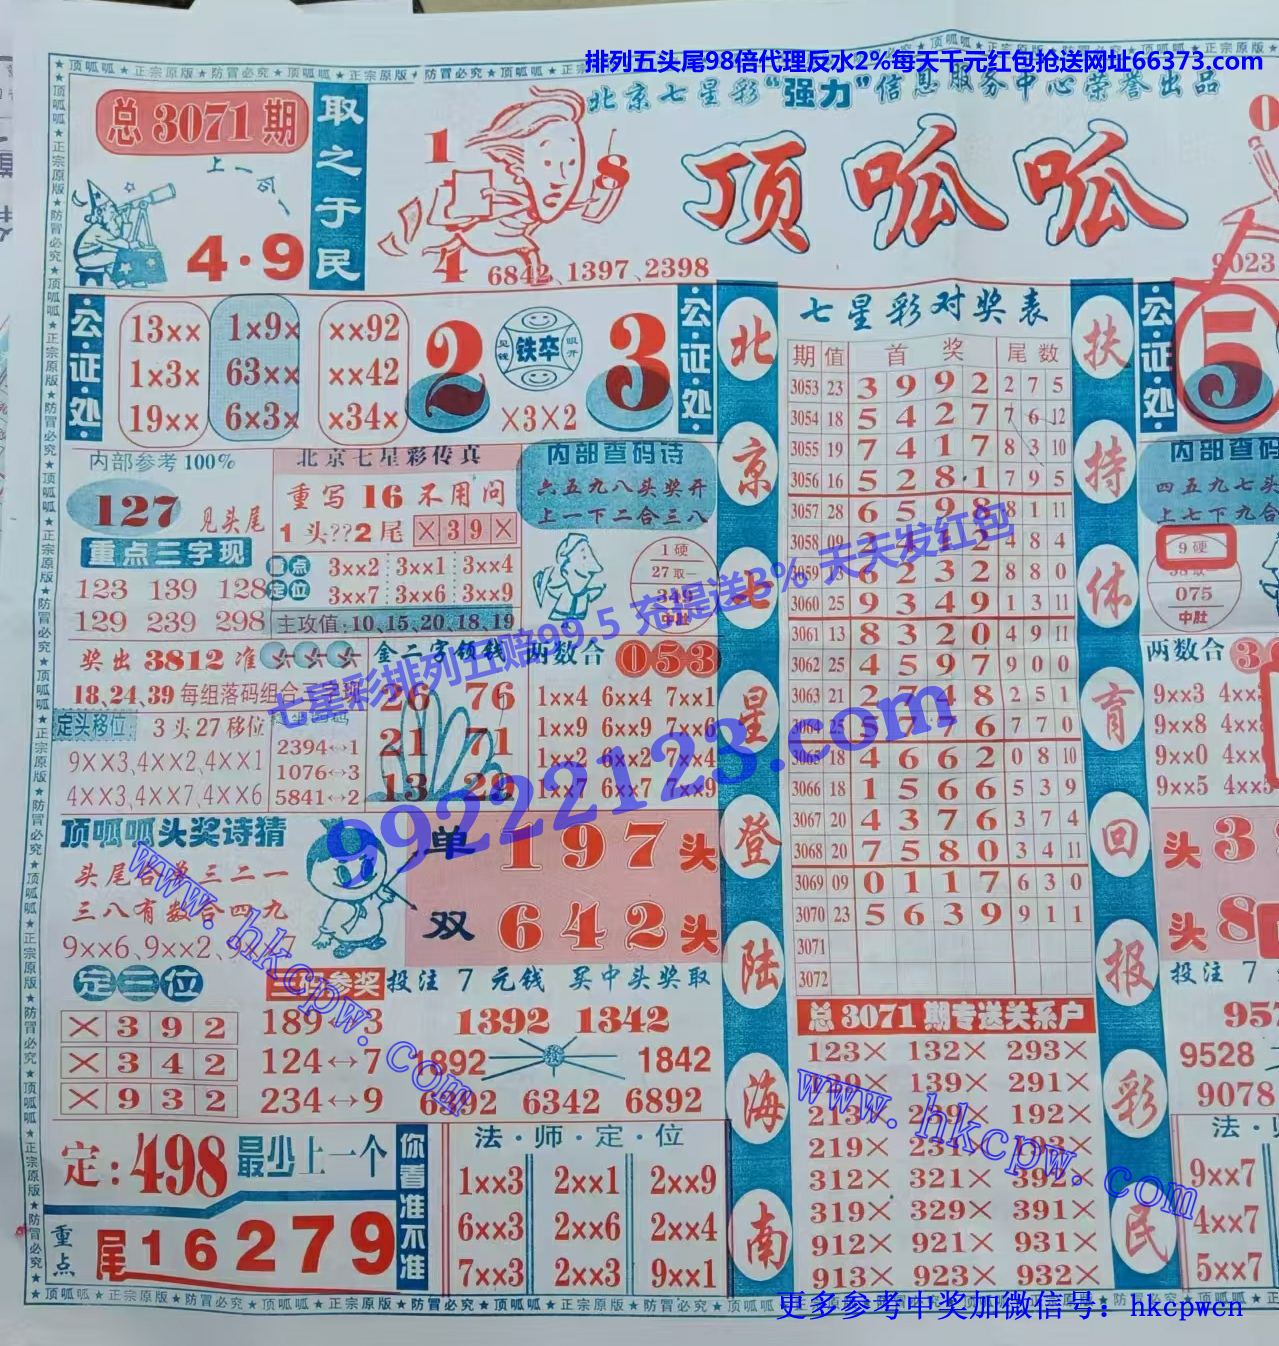 排列五头尾98倍代理反水2%每天千元红包抢送网址66373.com
北京七星彩“强力”信息服务中心荣誉出品
总3071期
上一句
4·9
取之于民
1
8
4
6842、1397、2398
顶呱呱
9023
公·证·处
13×× 1×9× ××92
1×3× 63×× ××42
19×× 6×3× ×34×
2 铁卒 3
×3×2
公·证·处
内部参考100%
127 见头尾
重点三字现
123 139 128
129 239 298
北京七星彩传真
重写16不用问
1头??2尾 ×39×
重点定位
3××2 3××1 3××4
3××7 3××6 3××9
主攻值:10,15,20,18,19
内部查码诗
六五九八头奖开
上一下二合三八
1硬
27取一
349
中肚
奖出3812准
18,24,39每组落码组合三字现
定头移位 3头27移位
9××3,4××2,4××1
4××3,4××7,4××6
2394↔1
1076↔3
5841↔2
金二字领钱
26 76
21 71
13 29
两数合 053
1××4 6××4 7××1
1××9 6××9 7××6
1××2 6××2 7××4
1××7 6××7 7××9
顶呱呱头奖诗猜
头尾合单三二一
三八有数合四九
9××6,9××2,9××7
单 197头
双 642头
定三位
×392
×342
×932
189↔3
124↔7
234↔9
投注7元钱 买中头奖取
1392 1342
1892 1842
6392 6342 6892
定:498最少上一个
重点 尾16279
你看准不准
法·师·定·位
1××3 2××1 2××9
6××3 2××6 2××4
7××3 2××3 9××1
北京七星登陆海南
七星彩对奖表
期 值 首奖 尾数
3053 23 3 9 9 2 2 7 5
3054 18 5 4 2 7 7 6 12
3055 19 7 4 1 7 8 3 10
3056 16 5 2 8 1 7 9 5
3057 28 6 5 9 8 8 1 11
3058 09 4 8 4
3059 6 2 3 2 8 8 0
3060 25 9 3 4 9 1 3 11
3061 13 8 3 2 0 4 9 11
3062 25 4 5 9 7 9 0 0
3063 21 2 7 4 8 2 5 1
3064 25 5 7 7 6 7 7 0
3065 18 4 6 6 2 0 8 10
3066 18 1 5 6 6 5 3 9
3067 20 4 3 7 6 3 7 4
3068 20 7 5 8 0 3 4 11
3069 09 0 1 1 7 6 3 0
3070 23 5 6 3 9 9 1 1
3071
3072
总3071期专送关系户
123× 132× 293×
129× 139× 291×
213× 239× 192×
219× 231× 193×
312× 321× 392×
319× 329× 391×
912× 921× 931×
913× 923× 932×
扶持体育回报彩民
公·证·处
5
内部查码
四五九七头
上七下九合
9硬
075
中肚
两数合 3
9××3 4××
9××8 4××
9××0 4××
9××5 4××
头3
头8
投注7
9528
9078
法·师
9××7
4××7
5××7
七星彩排列五赔99.5 充提送3% 天天发红包
99222123.com
www.hkcpw.com
www.hkcpw.com
更多参考中奖加微信号：hkcpwcn